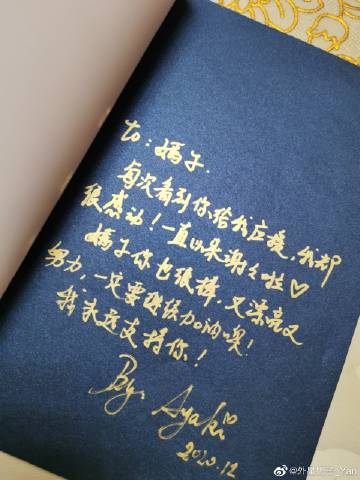 to：嬌子.
每次看到你给我应援，我都
很感动！一直以来谢谢啦♡
嬌子你也很棒，又漂亮又
努力，一定要继续加油噢！
我永远支持你！
By. Ayaki
2020.12